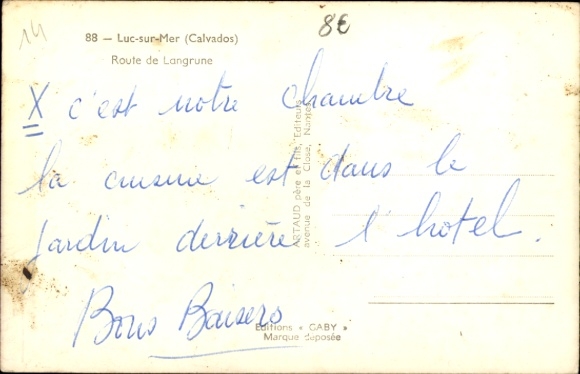 14
8€
88 — Luc-sur-Mer (Calvados)
Route de Langrune
X c'est notre chambre
la cuisine est dans le
jardin derrière l'hotel.
Bons Baisers
ARTAUD père et fils, Editeurs
avenue de la Close, Nantes
Editions « GABY »
Marque déposée